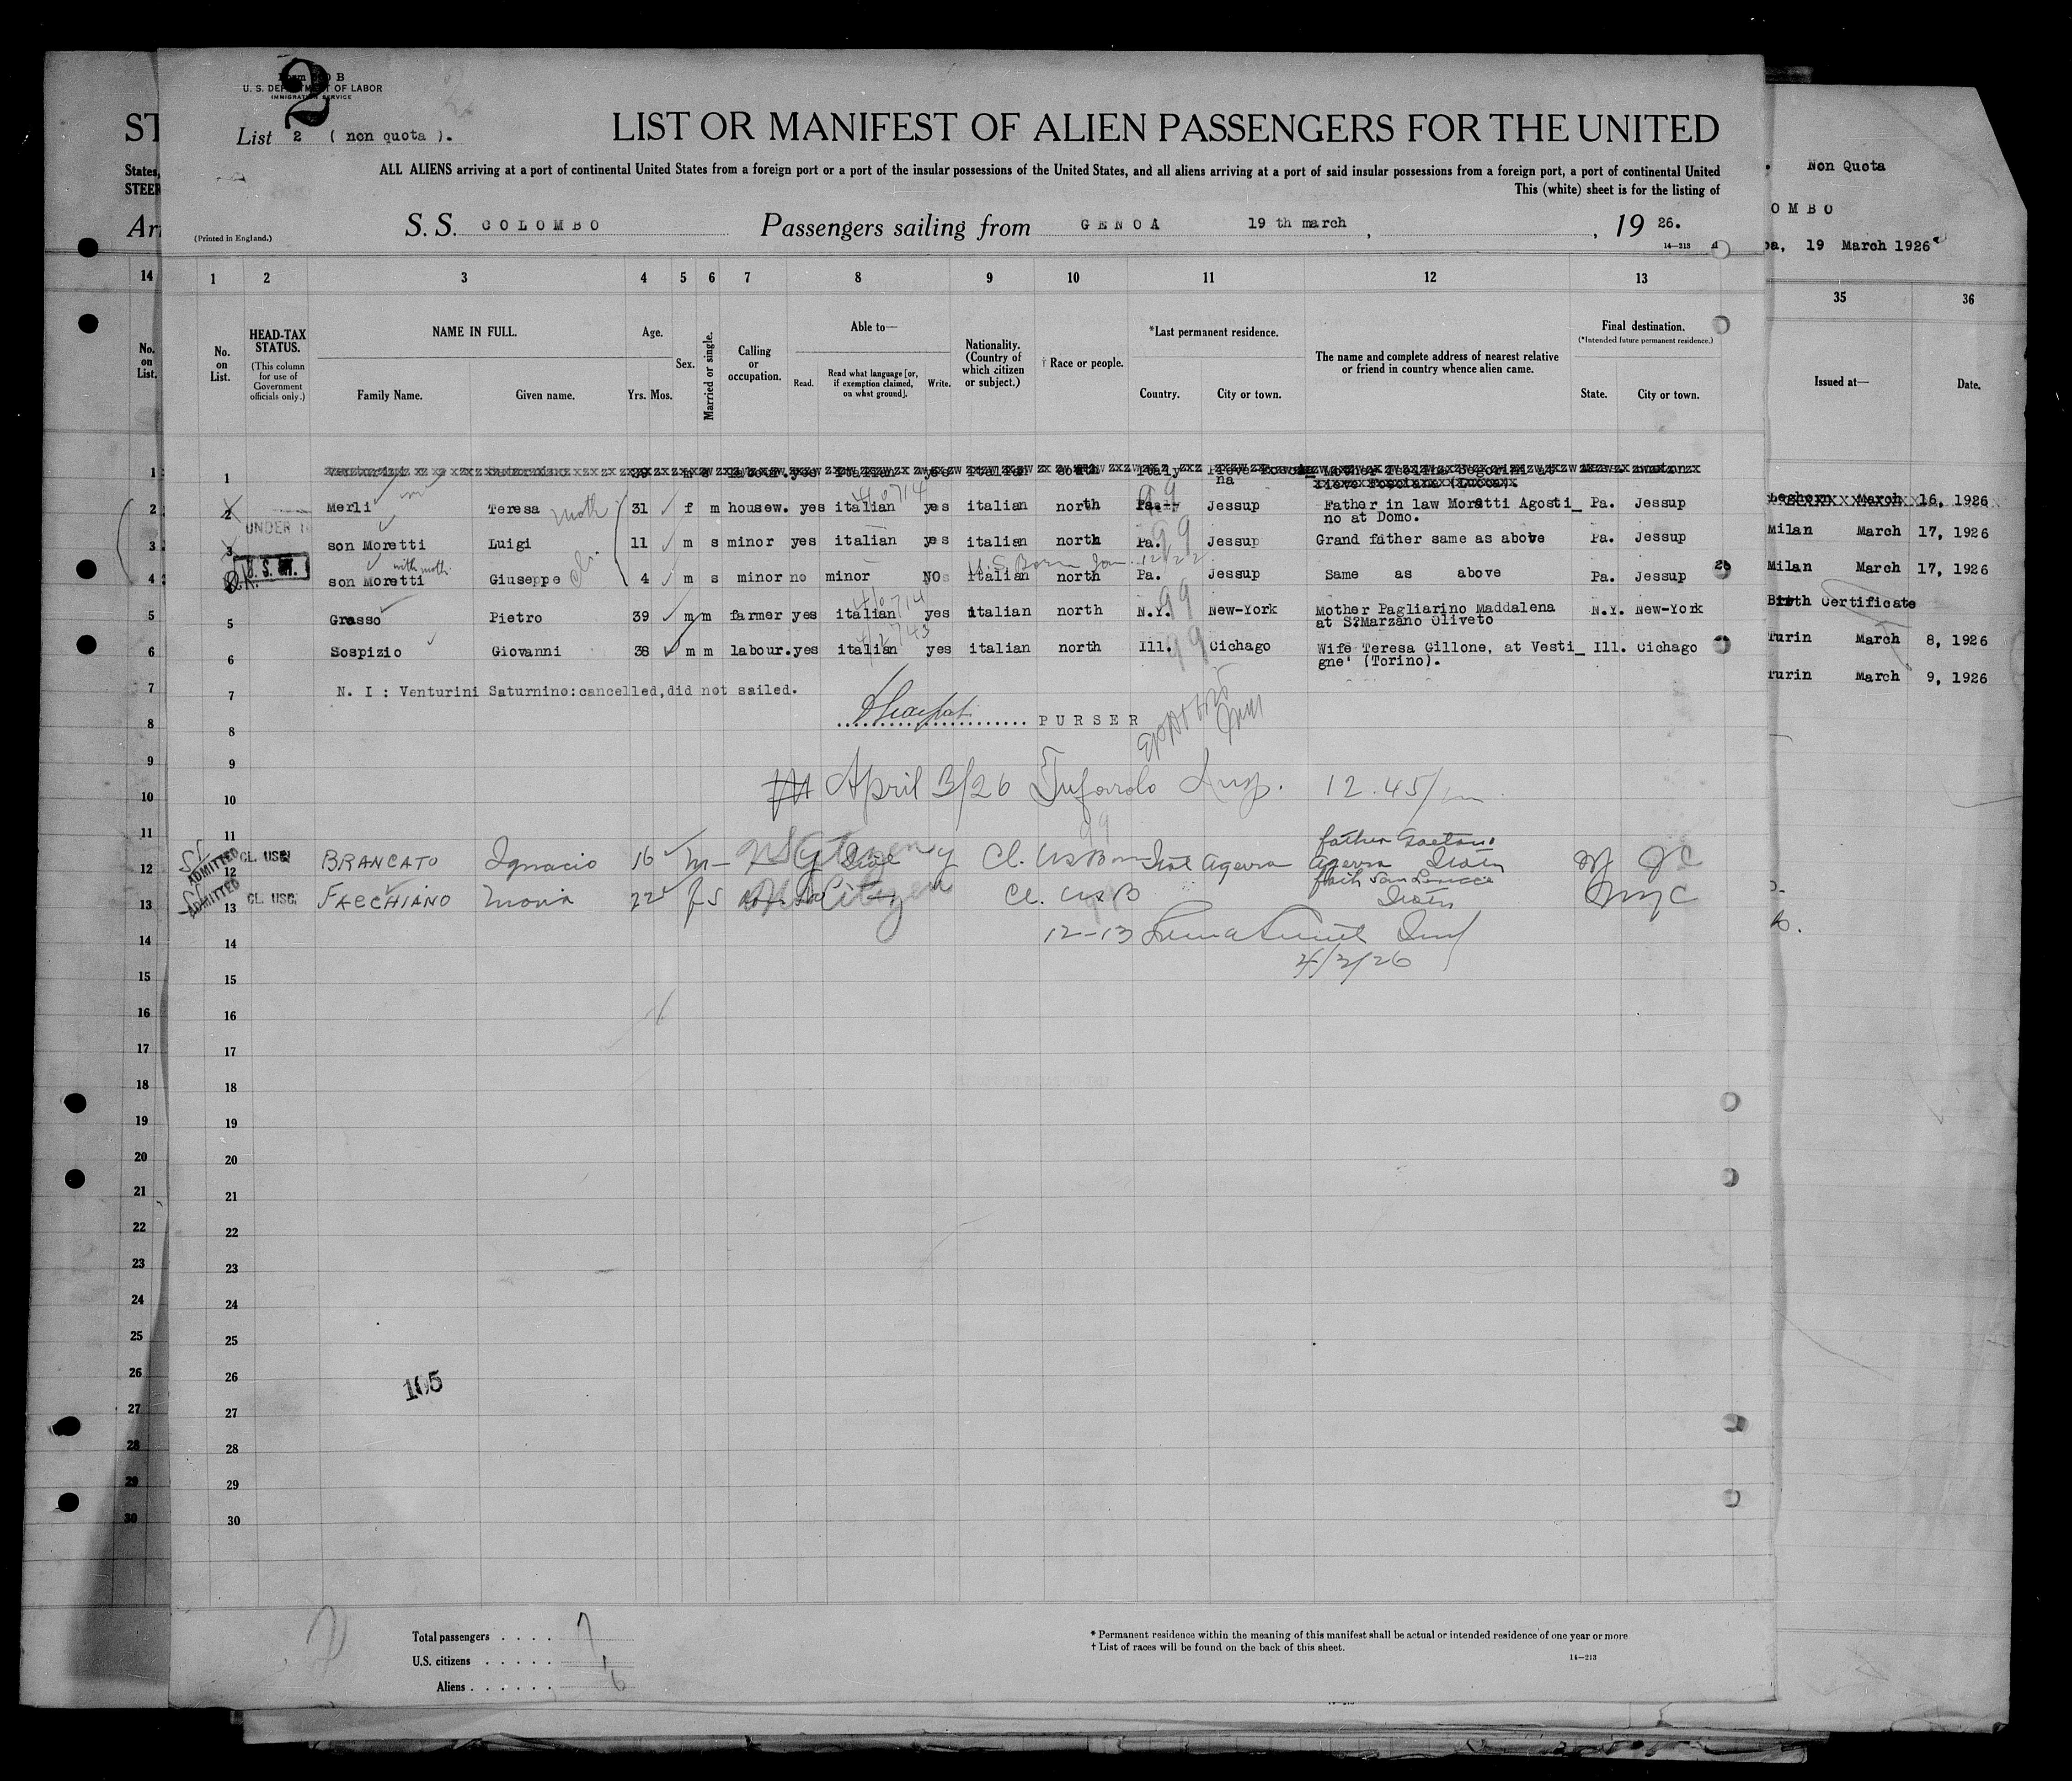 Form 500 B
U. S. DEPARTMENT OF LABOR
IMMIGRATION SERVICE
2
List 2 ( non quota ).
LIST OR MANIFEST OF ALIEN PASSENGERS FOR THE UNITED
ALL ALIENS arriving at a port of continental United States from a foreign port or a port of the insular possessions of the United States, and all aliens arriving at a port of said insular possessions from a foreign port, a port of continental United
This (white) sheet is for the listing of
S. S. COLOMBO Passengers sailing from GENOA 19 th march , , 19 26.
(Printed in England.)
14—213
1 2 3 4 5 6 7 8 9 10 11 12 13
No. on List.
HEAD-TAX STATUS.
(This column for use of Government officials only.)
NAME IN FULL.
Family Name. Given name.
Age.
Yrs. Mos.
Sex.
Married or single.
Calling or occupation.
Able to—
Read. Read what language [or, if exemption claimed, on what ground]. Write.
Nationality. (Country of which citizen or subject.)
† Race or people.
*Last permanent residence.
Country. City or town.
The name and complete address of nearest relative or friend in country whence alien came.
Final destination.
(*Intended future permanent residence.)
State. City or town.
1
2 Merli Teresa 31 f m housew. yes italian yes italian north Pa. Jessup Father in law Moretti Agosti_ Pa. Jessup
no at Domo.
UNDER 16
3 son Moretti Luigi 11 m s minor yes italian yes italian north Pa. Jessup Grand father same as above Pa. Jessup
with moth.
U.S. Born Jan. 12/22
4 son Moretti Giuseppe 4 m s minor no minor NO italian north Pa. Jessup Same as above Pa. Jessup
5 Grasso Pietro 39 m m farmer yes italian yes italian north N.Y. New-York Mother Pagliarino Maddalena N.Y. New-York
at S?Marzano Oliveto
6 Sospizio Giovanni 38 m m labour. yes italian yes italian north Ill. Cichago Wife Teresa Gillone, at Vesti_ Ill. Cichago
gne' (Torino).
7 N. I : Venturini Saturnino:cancelled,did not sailed.
8 PURSER
9
10 April 3/26 Tufarolo Insp. 12.45/
11
father Gaetano
ADMITTED CL. USC. 12 BRANCATO Ignacio 16 m US Citizen Cl. US Born
ADMITTED CL. USC. 13 FACCHIANO Maria 22 f s US Citizen Cl. USB NYC
14 12-13
15 4/3/26
16
17
18
19
20
21
22
23
24
25
26
105
27
28
29
30
Total passengers . . . . 7
U.S. citizens . . . . . 1
Aliens . . . . . . 6
* Permanent residence within the meaning of this manifest shall be actual or intended residence of one year or more
† List of races will be found on the back of this sheet.
14—213
ST
States,
STEER
Arr
14
No. on List.
1
2
3
4
5
6
7
8
9
10
11
12
13
14
15
16
17
18
19
20
21
22
23
24
25
26
27
28
29
30
Non Quota
OMBO
oa, 19 March 1926
35 36
Issued at— Date.
Leghorn March 16, 1926
Milan March 17, 1926
Milan March 17, 1926
Birth Certificate
Turin March 8, 1926
Turin March 9, 1926